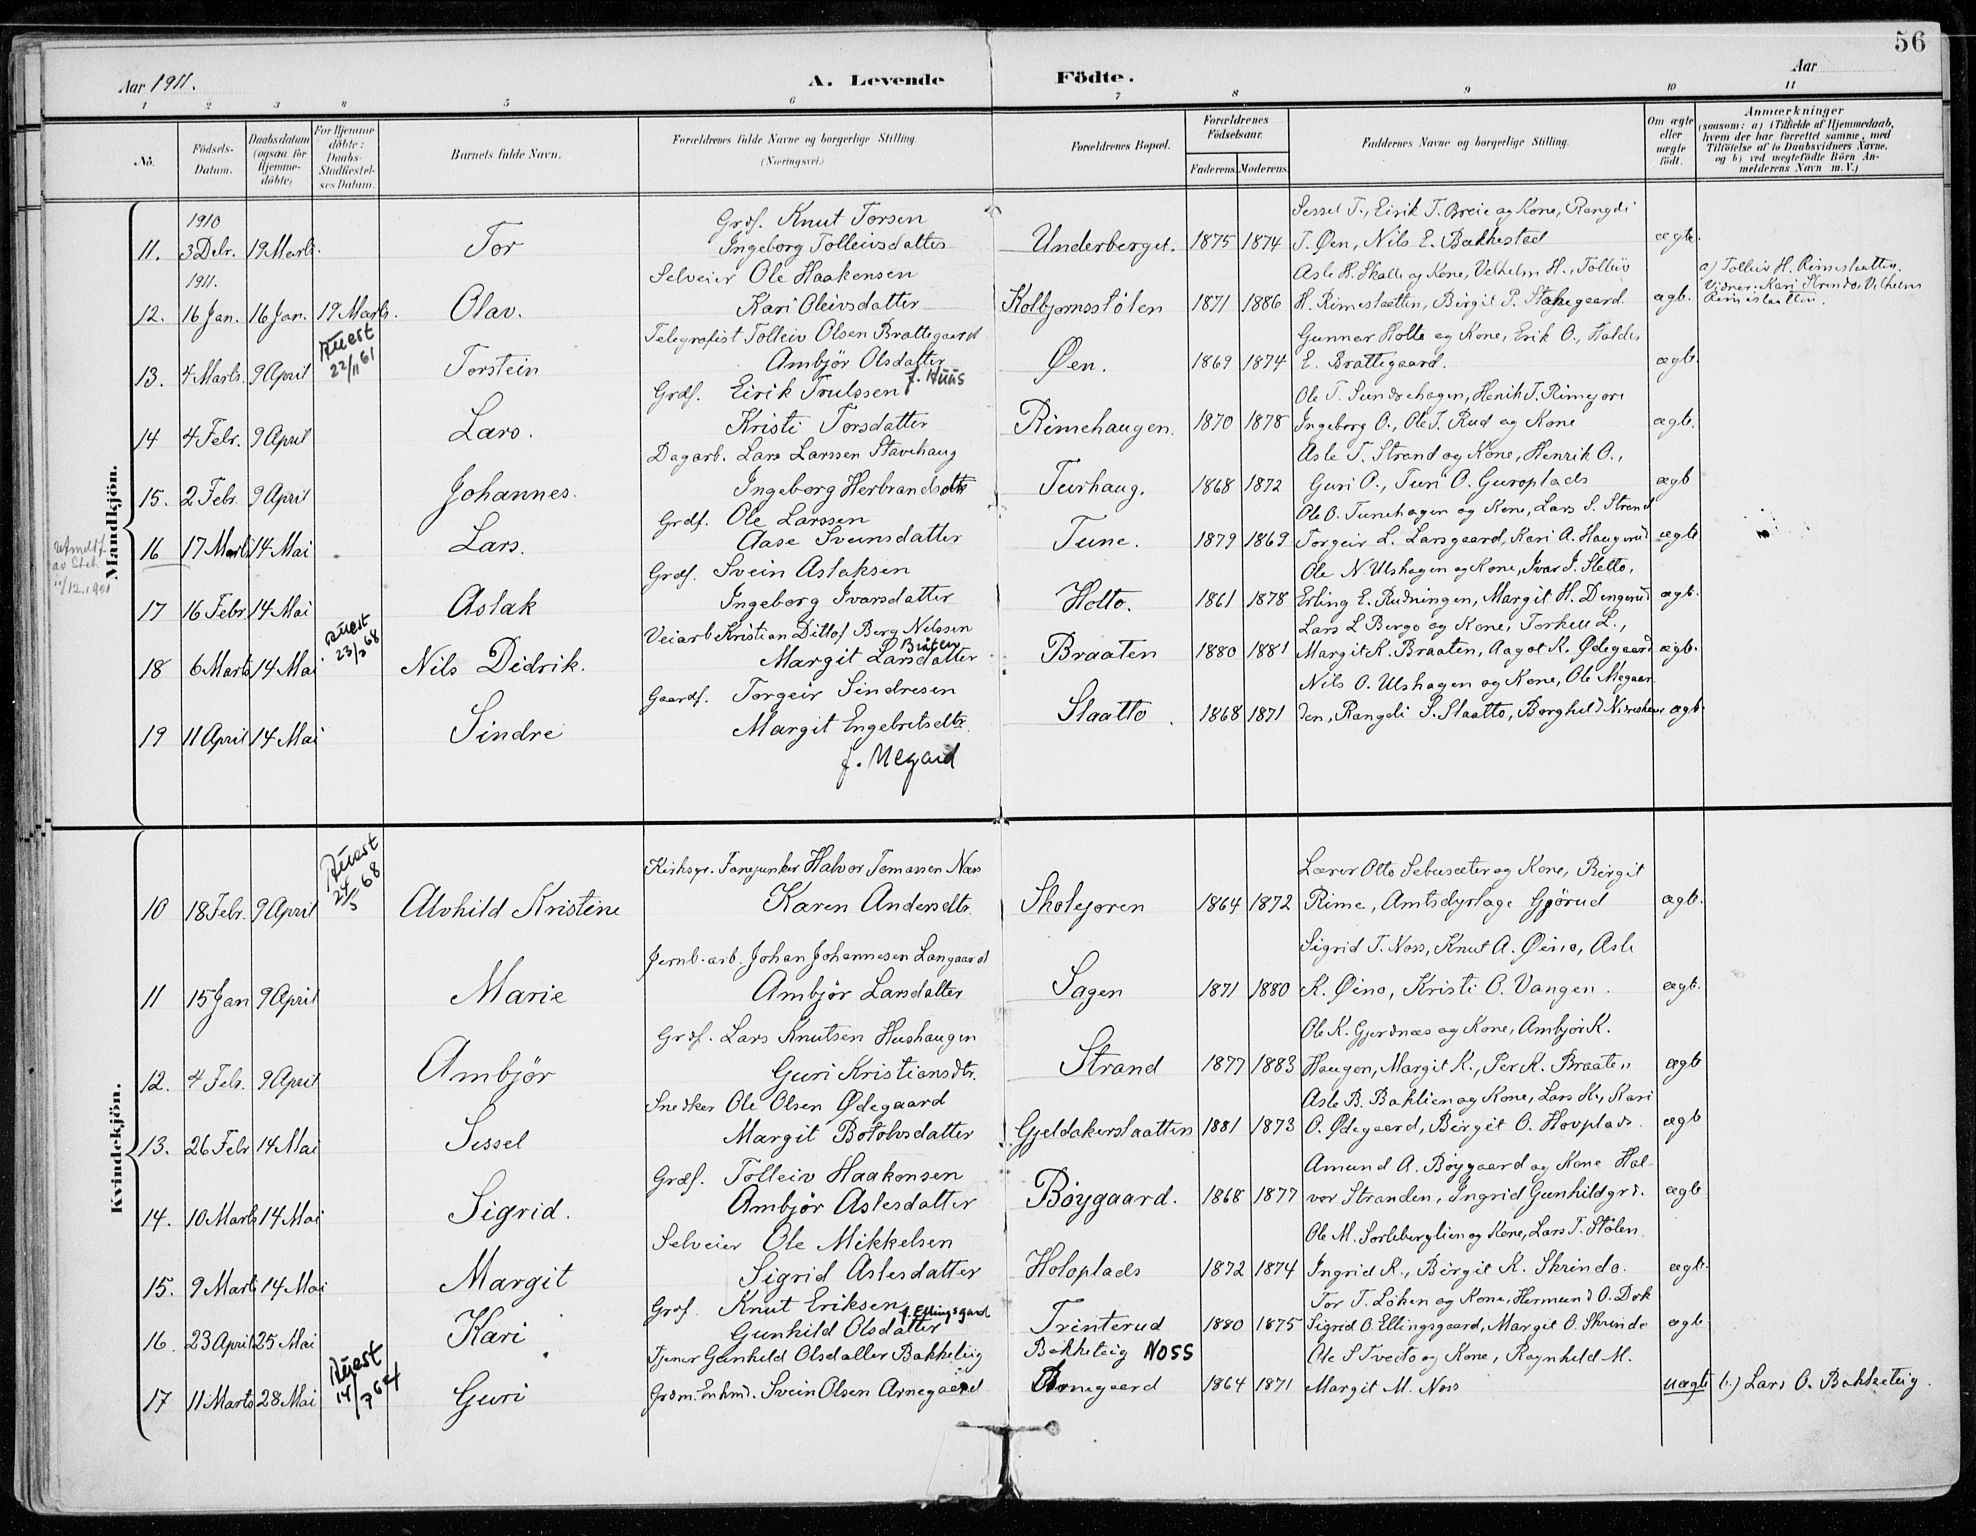 56
Aar 1911. A. Levende Födte. Aar
1 2 3 4 5 6 7 8 9 10 11
No. Födsels-Datum. Daabsdatum (ogsaa for Hjemmedöbte) For Hjemmedöbte: Daabs-Stadfæstelses Datum. Barnets fulde Navn. Forældrenes fulde Navne og borgerlige Stilling. (Næringsvei.) Forældrenes Bopæl. Forældrenes Födselsaar. Faderens. Moderens. Faddernes Navne og borgerlige Stilling. Om ægte eller uægte födt. Anmærkninger (saasom: a) i Tilfælde af Hjemmedaab, hvem der har forrettet samme, med Tilföielse af to Daabsvidners Navne, og b) ved uægtefödte Börn Anmelderens Navn m. V.)
Mandkjön.
1910 Grdf. Knut Torsen Sessel T., Eirik T. Breie og Kone, Rangdi
11. 3 Debr. 19 Marts. Tor Ingeborg Tolleivsdatter Underberget. 1875 1874 T. Øen, Nils E. Bakkestad ægte.
1911. Selveier Ole Haakensen Asle H. Skalle og Kone, Velhelm H., Tolleiv a) Tolleiv H. Rimeslaatten.
12. 16 Jan. 16 Jan. 19 Marts. Olav. Kari Oleivsdatter Kolbjornsstølen 1871 1886 H. Rimeslaatten, Birgit P. Stavegaard ægt. Vidner: Kari Skrindo, Velhelm Rimeslaatten.
Telegrafist Tolleiv Olsen Brattegaard Gunnar Holto og Kone, Erik O., Haldis
13. 4 Marts. 9 April Attest 22/11 61 Torstein Ambjör Olsdatter f. Huus Øen. 1869 1874 E. Brattegaard. ægt.
Grdf. Eirik Trulssen Ole T. Sundrehagen, Henrik T. Rimejore
14 4 Febr. 9 April Lars. Kristi Torsdatter Rimehaugen. 1870 1878 Ingeborg O., Ole T. Rud og Kone ægt.
Dagarb. Lars Larssen Stavehaug Asle T. Strand og Kone, Henrik O.,
15. 2 Febr. 9 April Johannes. Ingeborg Herbrandsdtr Turhaug. 1868 1872 Guri O., Turi O. Guroplads ægt
Grdf. Ole Larssen Ole O. Tunehagen og Kone, Lars S. Strand
16 17 Marts 14 Mai Lars. Aase Sveinsdatter Tune. 1879 1869 Torgeir L. Larsgaard, Kari A. Haugerud ægt.
Grdf. Svein Aslaksen Ole N. Ulshagen og Kone, Ivar I. Sletto,
17 16 Febr 14 Mai Aslak Ingeborg Ivarsdatter Holto. 1861 1878 Erling E. Rudningen, Margit H. Dengerud ægt.
Veiarb Kristian Ditlof Berg Nelssen Lars L Bergo og Kone, Torkell L.,
18 6 Marts 14 Mai Attest 23/3 68 Nils Didrik. Margit Larsdatter Bråten Braaten 1880 1881 Margit K. Braaten, Aagot K. Ødegaard ægt.
Gaardf. Torgeir Sindresen Nils O. Ulshagen og Kone, Ole Megaar-
19 11 April 14 Mai Sindre Margit Engebretsdtr. Slaatto. 1868 1871 den, Rangdi S. Slaatto, Borghild ægt.
f. Megard
Kvindekjön.
Kirkesgr. Fanejunker Halvor Tomassen Næs Lærer Otto Sebusæter og Kone, Birgit
10 18 Febr. 9 April Attest 24/5 68 Alvhild Kristine Karen Andersdtr. Skolejoren 1864 1872 Rime, Amtsdyrlæge Gjörud ægt.
Jernb.-arb. Johan Johannesen Langaard Sigrid T. Noss, Knut A. Øino, Asle
11 15 Jan 9 April Marie Ambjör Larsdatter Sagen 1871 1880 K. Øino, Kristi O. Vangen. ægt.
Grdf. Lars Knutsen Hushaugen Ole K. Gjerdnæs og Kone, Ambjör K.
12. 4 Febr. 9 April Ambjör Guri Kristiansdtr. Strand 1877 1883 Haugen, Margit K., Per K. Braaten ægt
Snedker Ole Olsen Ødegaard Asle B. Baklien og Kone, Lars K., Kari
13. 26 Febr 14 Mai Sessel Margit Botolvsdatter Gjeldakerslaatten 1881 1873 O. Ødegaard, Birgit O. Hovplads. ægt
Grdf. Tolleiv Haakonsen Amund A. Bøygaard og Kone Hal-
14. 10 Marts 14 Mai Sigrid. Ambjör Aslesdatter Bøygaard. 1868 1877 vor Stranden, Ingrid Gunhildgrd. ægt
Selveier Ole Mikkelsen Ole M. Sorleberglien og Kone, Lars T. Stölen
15. 9 Marts 14 Mai Margit Sigrid Aslesdatter Holoplads 1872 1874 Ingrid K., Birgit K. Skrindo. ægt.
Grdf. Knut Eriksen Tor T. Löken og Kone, Hermund O. Dok
16. 23 April 25 Mai Kari Gunhild Olsdatter f. Ellingsgard Trinterud 1880 1875 Sigrid O. Ellingsgaard, Margit O. Skrindo ægt
Tjener Gunhild Olsdatter Bakketeig Bakketeig Noss Ole S Tveito og Kone, Ragnhild M.
17 11 Marts 28 Mai Attest 14/3 64 Guri Grdm. Enkmd. Svein Olsen Arnegaard Arnegaard 1864 1871 Margit M. Noss uægt b.) Lars O. Bakketeig.